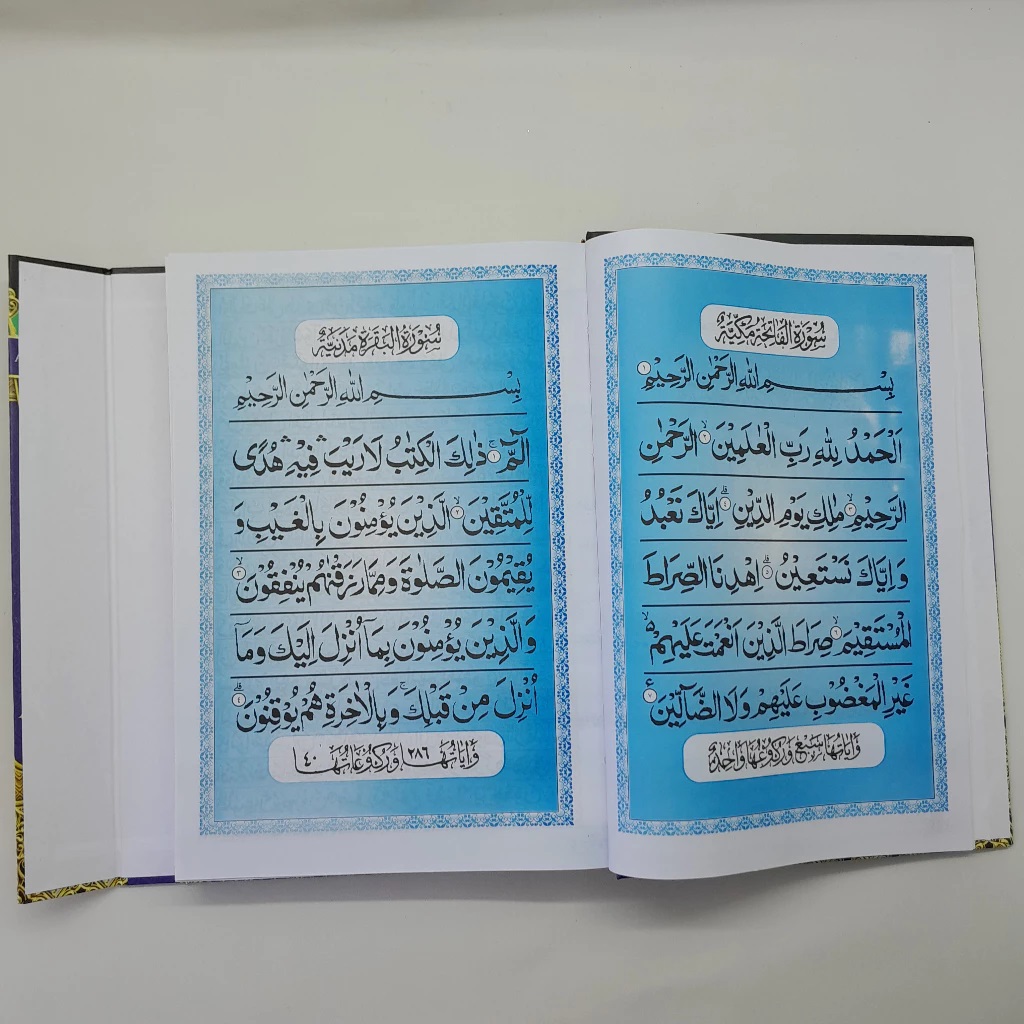 سُوْرَةُ الْفَاتِحَةِ مَكِّيَّةٌ
بِسْمِ اللهِ الرَّحْمٰنِ الرَّحِيْمِ ١
اَلْحَمْدُ لِلّٰهِ رَبِّ الْعٰلَمِيْنَ ٢ۙ الرَّحْمٰنِ
الرَّحِيْمِ ٣ۙ مٰلِكِ يَوْمِ الدِّيْنِ ٤ۗ اِيَّاكَ نَعْبُدُ
وَاِيَّاكَ نَسْتَعِيْنُ ٥ۗ اِهْدِنَا الصِّرَاطَ
الْمُسْتَقِيْمَ ٦ۙ صِرَاطَ الَّذِيْنَ اَنْعَمْتَ عَلَيْهِمْ ۙ
غَيْرِ الْمَغْضُوْبِ عَلَيْهِمْ وَلَا الضَّآلِّيْنَ ٧
وَاٰيَاتُهَا سَبْعٌ وَرُكُوْعُهَا وَاحِدَةٌ
سُوْرَةُ الْبَقَرَةِ مَدَنِيَّةٌ
بِسْمِ اللهِ الرَّحْمٰنِ الرَّحِيْمِ
الٓمّٓ ١ۚ ذٰلِكَ الْكِتٰبُ لَا رَيْبَ ۛ فِيْهِ ۛ هُدًى
لِّلْمُتَّقِيْنَ ٢ۙ الَّذِيْنَ يُؤْمِنُوْنَ بِالْغَيْبِ وَ
يُقِيْمُوْنَ الصَّلٰوةَ وَمِمَّا رَزَقْنٰهُمْ يُنْفِقُوْنَ ٣ۙ
وَالَّذِيْنَ يُؤْمِنُوْنَ بِمَآ اُنْزِلَ اِلَيْكَ وَمَآ
اُنْزِلَ مِنْ قَبْلِكَ ۚ وَبِالْاٰخِرَةِ هُمْ يُوْقِنُوْنَ ٤ۗ
وَاٰيَاتُهَا ٢٨٦ وَرُكُوْعَاتُهَا ٤٠